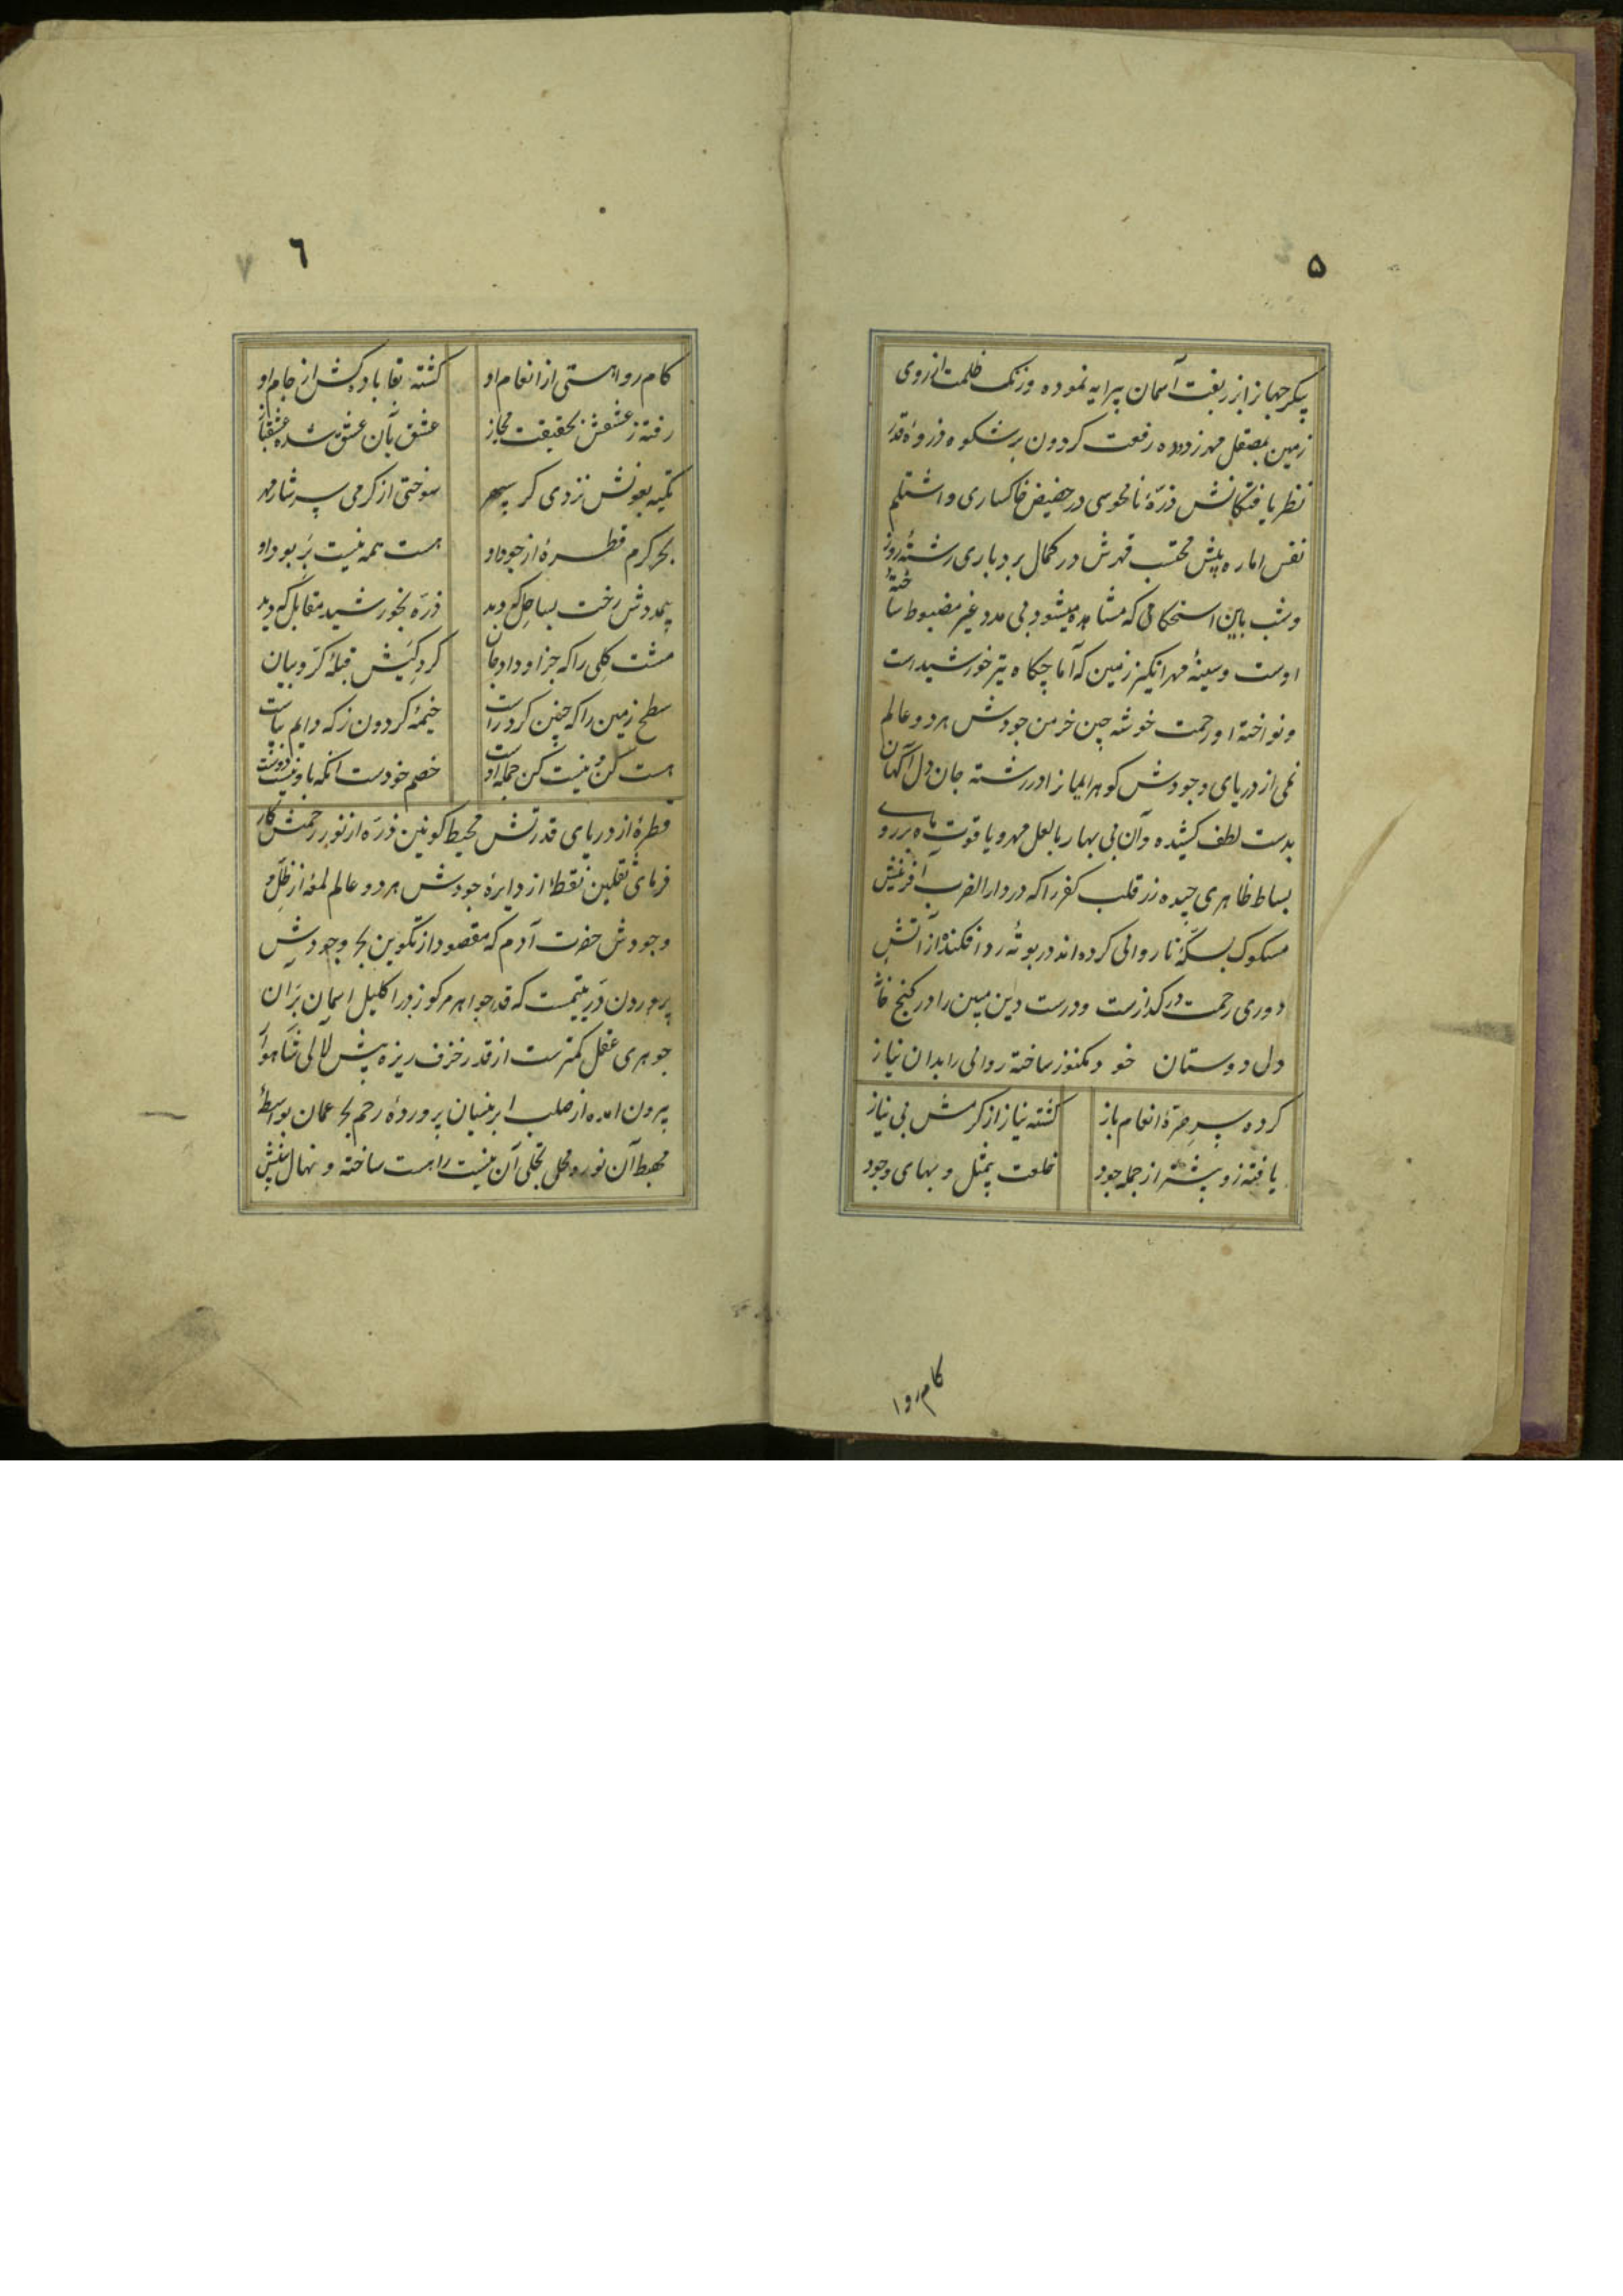 ۵
پیکر جهانرا بزربفت آسمان پیرایه نموده وزنک ظلمت از روی
زمین بمصقل مهر زدوده رفعت کردون پرشکوه ذروهٔ قدر
نظر یافتکانش ذرّهٔ نامحوسی در حضیض خاکساری و اشتلم
نفس اماره پیش محتسب قهرش در کمال بردباری رشتهٔ روز
وشب باین استحکامی که مشاهده میشود بی مدد غیر مضبوط ساختهٔ
اوست وسینهٔ مهرانکیز زمین که آماجکاه تیر خورشید است
ونواختهٔ او رحمت خوشه چین خرمن جودش هر دو عالم
نمی از دریای وجودش کوهر ایمانرا در رشته جان دل آکهان
بدست لطف کشیده وآن بی بهار بالعل مهر و یاقوت ماه بر روی
بساط ظاهری چیده زر قلب کفر را که در دار الضرب آفرینش
مسکوک بسکهٔ ناروائی کرده اند در بوتهٔ رد افکنده از آتش
دوری رحمت در کدازست ودرست دین مبین را در کنج خانهٔ
دل دوستان خود مکنوز ساخته روائی را بدان نیاز
کرده سر صرّهٔ انعام باز
کشته نیاز از کرمش بی نیاز
یافته زو پیشتر از جمله جود
خلعت بیمثل و بهای وجود
کام روا
٦
٧
کام روا هستی از انعام او
کشته بقا باده کش از جام او
رفته ز عشقش بحقیقت مجاز
عشق بآن عشق شده عشقباز
تکیه بعونش نزدی کر سپهر
سوختی از کرمی سرشار مهر
بحر کرم قطرهٔ از جود او
هست همه نیست بر بود او
بیمددش رخت بساحل که دید
ذرّه بخورشید مقابل که دید
مشت کلی را که جز او داد جان
کرد کیش قبلهٔ کرّوبیان
سطح زمین را که چنین کرد راست
خیمهٔ کردون ز که دایم بپاست
هست کن نیست کن جمله اوست
خصم خودست آنکه باو نیست دوست
قطرهٔ از دریای قدرتش محیط کونین ذرّه از نور رحمتش کار
فرمای ثقلین نقطهٔ از دایرهٔ جودش هر دو عالم لمعهٔ از ظلّ
وجودش حضرت آدم که مقصود از تکوین بحر وجودش
پروردن درّ یتیمست که قدر جواهر مرکوز در اکلیل آسمان بر آن
جوهری عقل کمترست از قدر خزف ریزه پیش لآلی شاهوار
بیرون امده از صلب ابر نیسان پروردهٔ رحم بحر عمان بواسطهٔ
مهبط آن نور ومحل تجلی آن نیست را هست ساخته و نهال